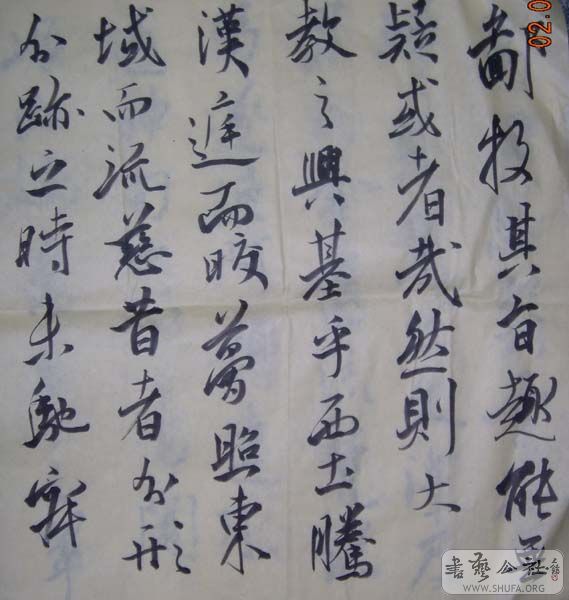 鄙投其旨趣能無
疑或者哉然則大
教之興基乎西土騰
漢庭而皎夢照東
域而流慈昔者分形
分跡之時未馳
02.0
書藝公社
WWW.SHUFA.ORG